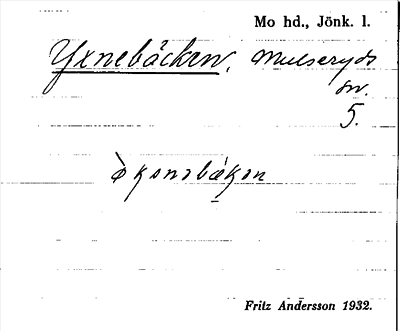 Mo hd., Jönk. l.
Yxnebäcken, Mulseryds
sn.
5.
Fritz Andersson 1932.